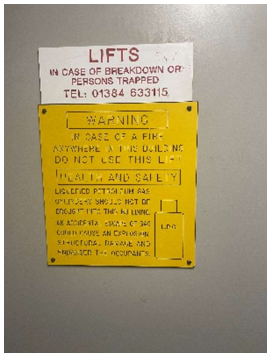 LIFTS
IN CASE OF BREAKDOWN OR
PERSONS TRAPPED
TEL: 01384 633115
WARNING
IN CASE OF A FIRE
ANYWHERE IN THIS BUILDING
DO NOT USE THIS LIFT
HEALTH AND SAFETY
LIQUEFIED PETROLEUM GAS
CYLINDERS SHOULD NOT BE
BROUGHT INTO THIS BUILDING.
AN ACCIDENTAL ESCAPE OF GAS
COULD CAUSE AN EXPLOSION
STRUCTURAL DAMAGE AND
ENDANGER THE OCCUPANTS.
LPG